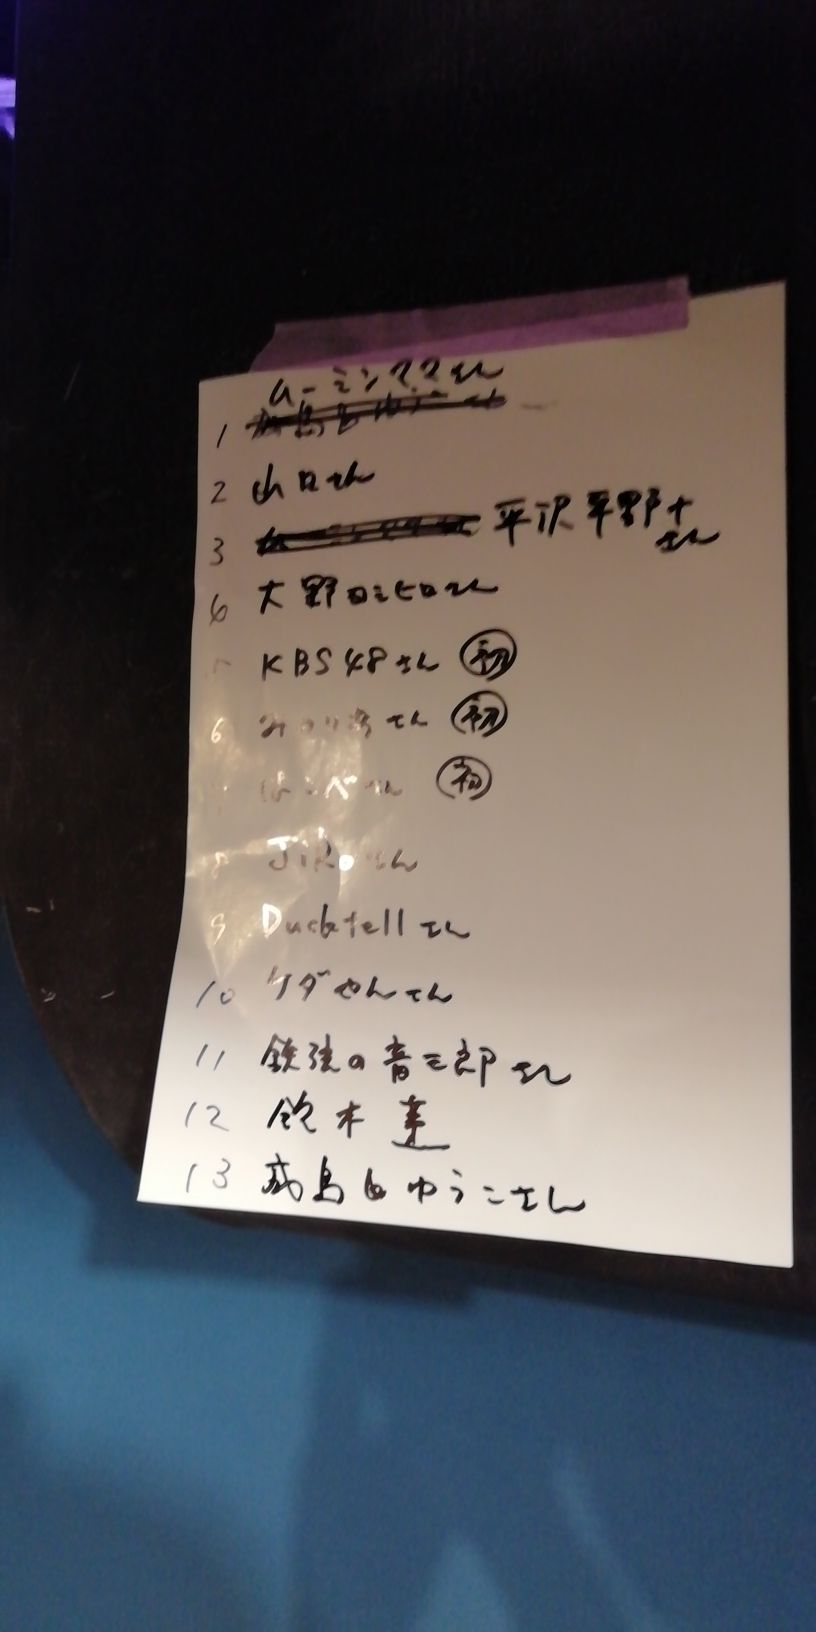 ムーミンママさん
1
2 山口さん
3 平沢平野+
さん
大野ロミヒロさん
KBS48さん 初
6 さん 初
さん 初
8 JiRoさん
9 Ducktellさん
10 ケダやんさん
11 鉄弦の音三郎さん
12 鈴木
13 成島とゆうこさん